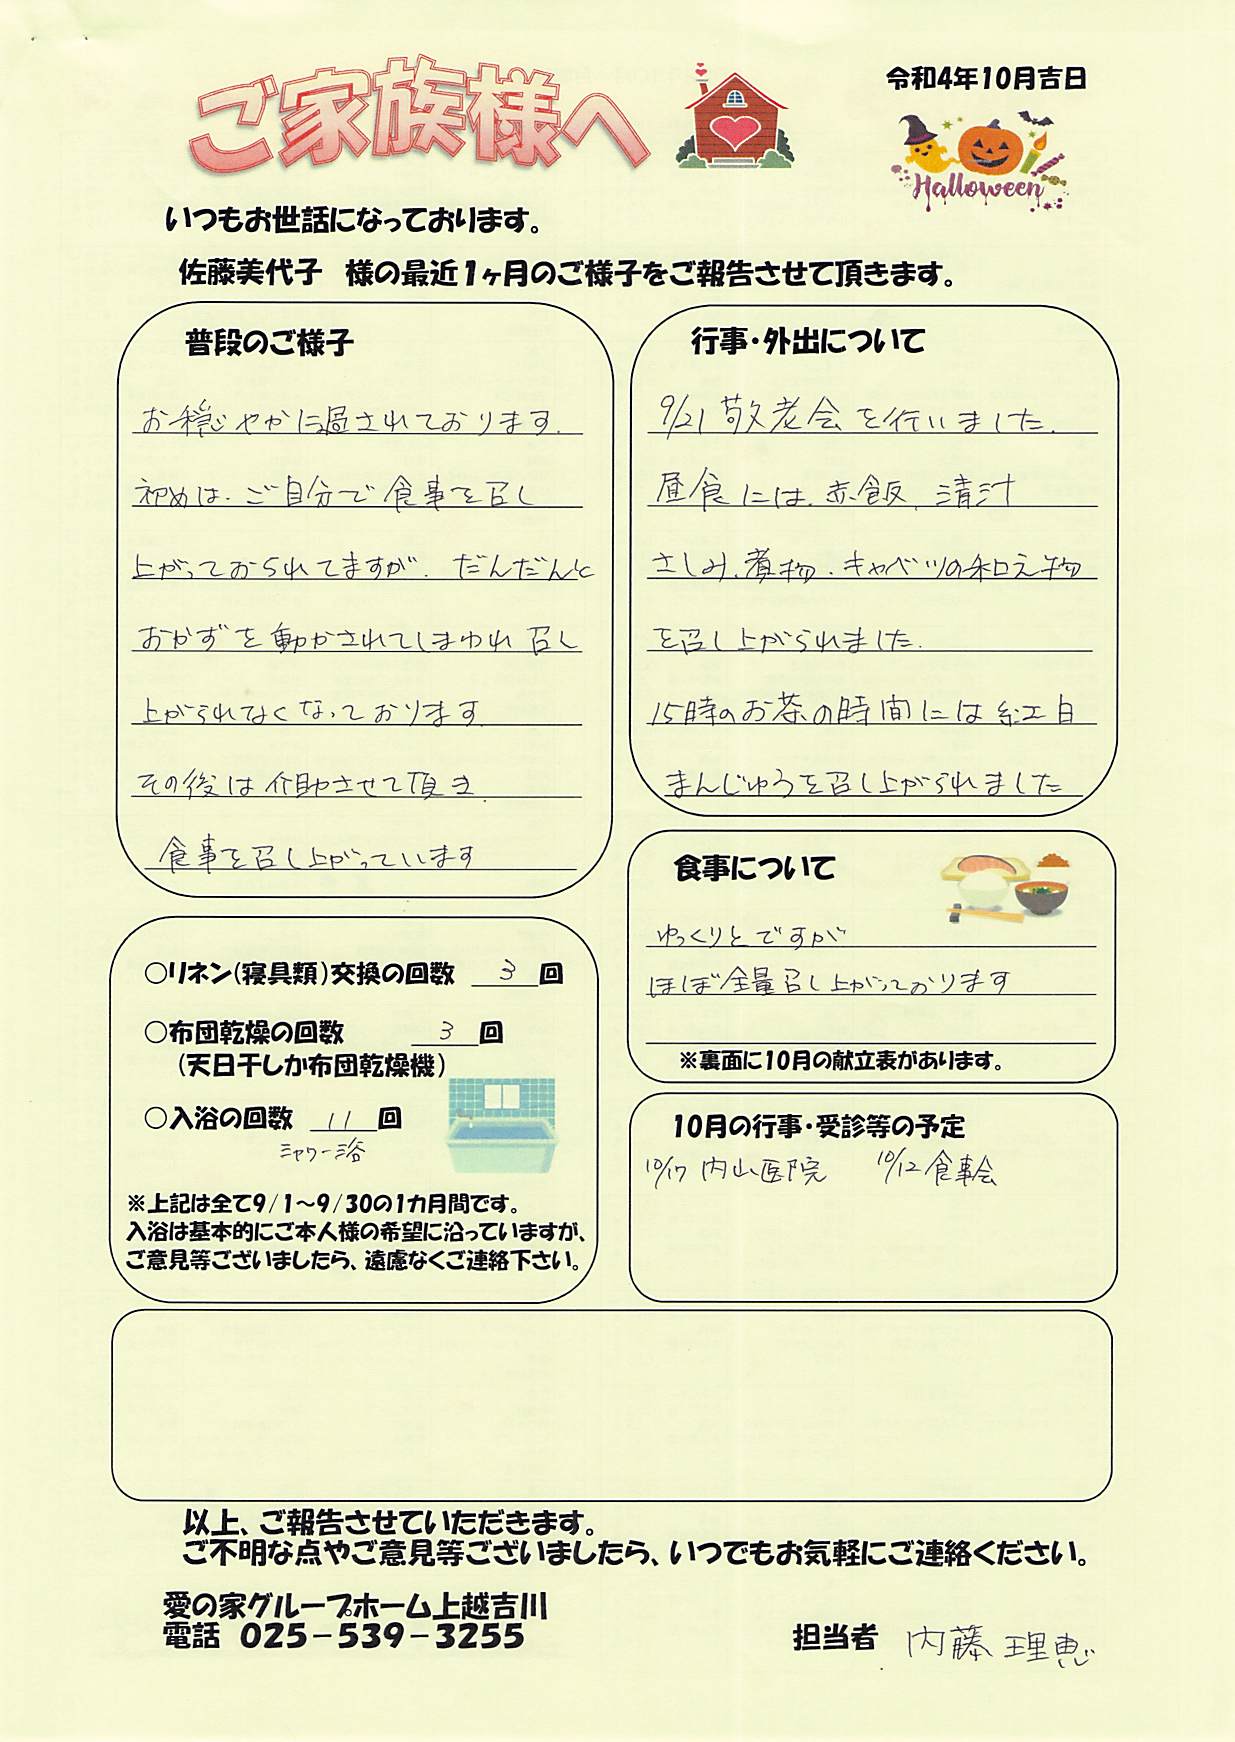 ご家族様へ
令和4年10月吉日
Halloween
いつもお世話になっております。
佐藤美代子 様の最近1ヶ月のご様子をご報告させて頂きます。
普段のご様子
お穏やかに過されております.
初めは、ご自分で食事を召し
上がっておられてますが、だんだんと
おかずを動かされてしまわれ召し
上がられなくなっております
その後は介助させて頂き
食事を召し上がっています
行事・外出について
9/21 敬老会を行いました.
昼食には、赤飯、清汁
さしみ、煮物、キャベツの和え物
を召し上がられました.
15時のお茶の時間には紅白
まんじゅうを召し上がられました
食事について
ゆっくりとですが
ほぼ全量召し上がっております
※裏面に10月の献立表があります。
○リネン(寝具類)交換の回数 3 回
○布団乾燥の回数 3 回
(天日干しか布団乾燥機)
○入浴の回数 11 回
シャワー浴
※上記は全て9/1~9/30の1カ月間です。
入浴は基本的にご本人様の希望に沿っていますが、
ご意見等ございましたら、遠慮なくご連絡下さい。
10月の行事・受診等の予定
10/17 内山医院 10/12 食事会
以上、ご報告させていただきます。
ご不明な点やご意見等ございましたら、いつでもお気軽にご連絡ください。
愛の家グループホーム上越吉川
電話 025-539-3255
担当者 内藤 理恵